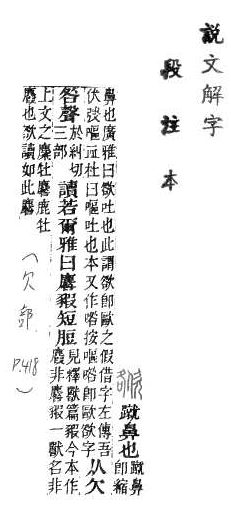 說文解字
段注本
蹴鼻也
蹴鼻
卽縮
鼻也廣雅曰㰶吐也此謂㰶卽歐之假借字左傳吾
伏弢嘔血杜曰嘔吐也本又作㗜按嘔㗜卽歐㰶字
从欠
咎聲
於糾切
三部
讀若爾雅曰麔豭短脰
見釋獸篇豭今本作
麚非麔豭一獸名非
上文之麋牡麔鹿牡
麚也㰶讀如此麔
(欠部 P.418)